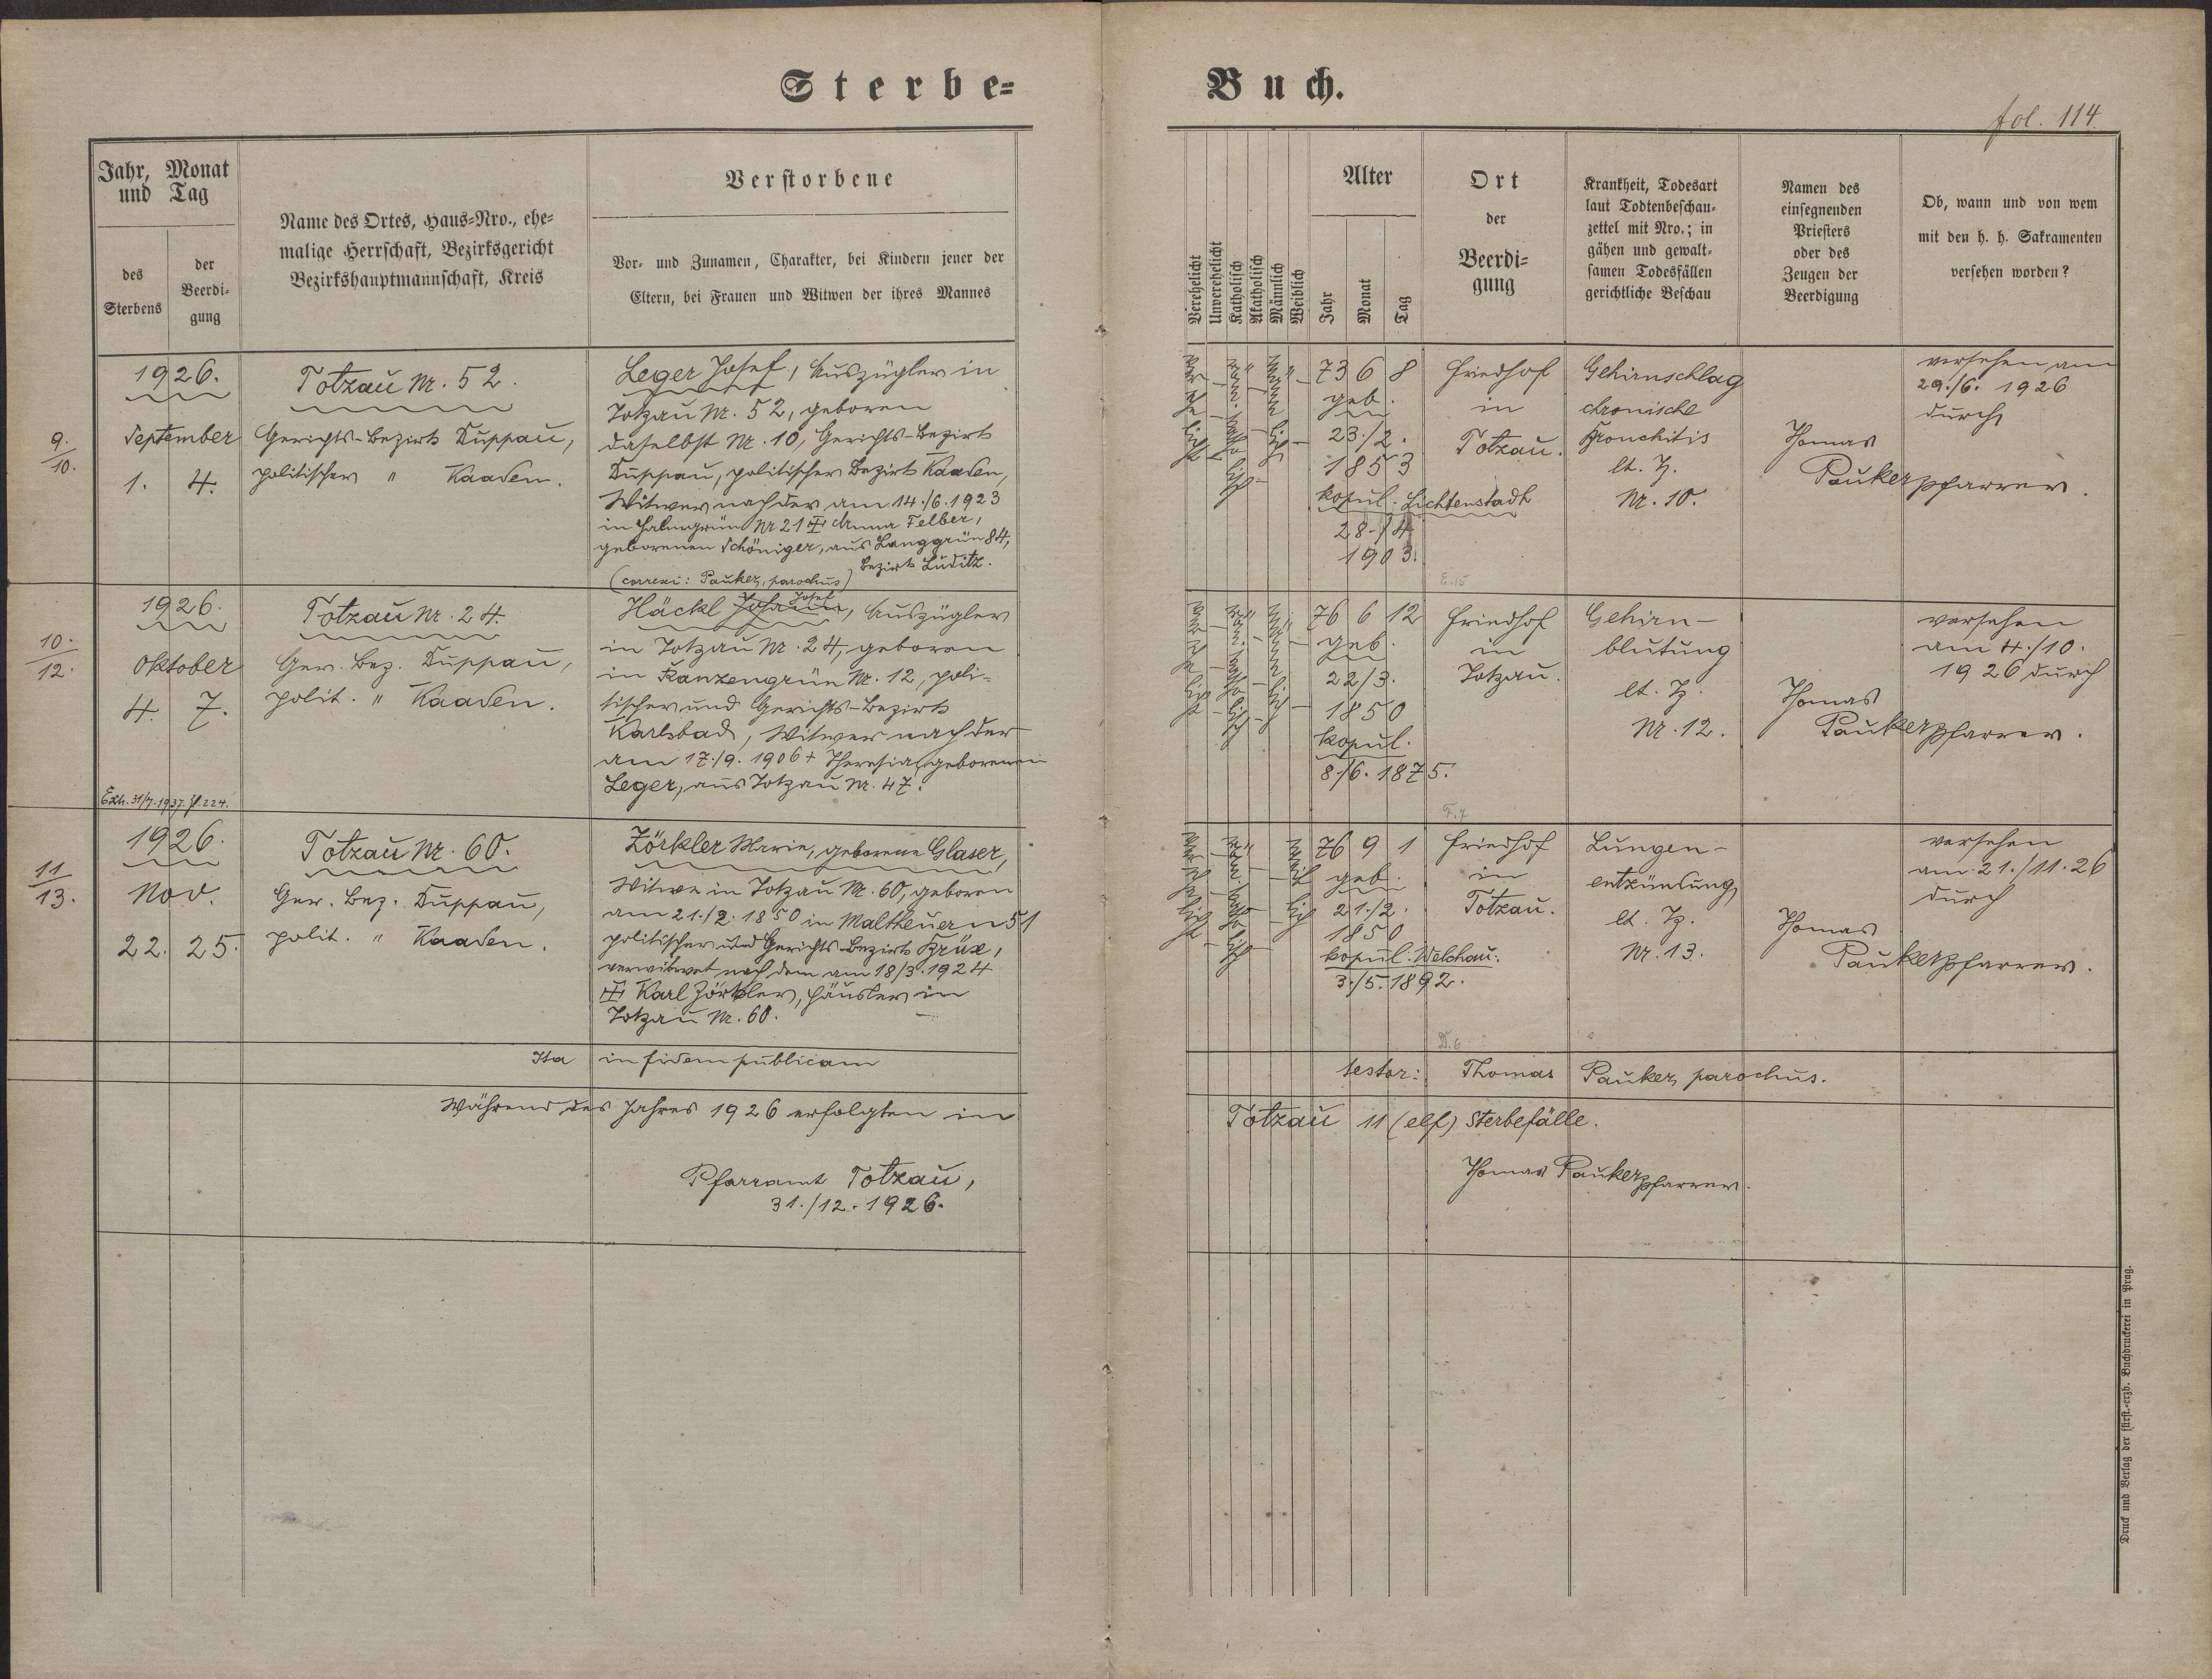 Sterbe-
Buch.
fol. 114
Jahr, Monat
und Tag
des
Sterbens
der
Beerdi-
gung
Name des Ortes, Haus-Nro., ehe-
malige Herrschaft, Bezirksgericht
Bezirkshauptmannschaft, Kreis
Verstorbene
Vor- und Zunamen, Charakter, bei Kindern jener der
Eltern, bei Frauen und Witwen der ihres Mannes
Verehelicht
Unverehelicht
Katholisch
Akatholisch
Männlich
Weiblich
Alter
Jahr
Monat
Tag
Ort
der
Beerdi-
gung
Krankheit, Todesart
laut Todtenbeschau-
zettel mit Nro.; in
gähen und gewalt-
samen Todesfällen
gerichtliche Beschau
Namen des
einsegnenden
Priesters
oder des
Zeugen der
Beerdigung
Ob, wann und von wem
mit den h. h. Sakramenten
versehen worden?
9.
10.
1926.
September
1. 4.
Totzau Nr. 52.
Gerichts-Bezirk Duppau,
politischer " Kaaden.
Leger Josef, Auszügler in
Totzau Nr. 52, geboren
daselbst Nr. 10, Gerichts-Bezirk
Duppau, politischer Bezirk Kaaden,
Witwer nach der am 14./6.1923
in Halmgrün Nr 21 Anna Felber,
geborenen Schöniger, aus Langgrün 84,
Bezirk Luditz.
(correxi: Pauker, parochus)
verehelicht
römisch-katholisch
männlich
73 6 8
geb.
23./2.
1853
kopul. Lichtenstadt
28./4
1903.
Friedhof
in
Totzau.
E.15
Gehirnschlag
chronische
Bronchitis
lt. Z.
Nr. 10.
Thomas
Pauker Pfarrer.
versehen am
29./6. 1926
durch
10.
12.
1926.
Oktober
4. 7.
Exh. 31/7.1937. Z. 224.
Totzau Nr. 24.
Ger. Bez. Duppau,
polit. " Kaaden.
Josef
Häckl Johann, Auszügler
in Totzau Nr. 24, geboren
in Ranzengrün Nr. 12, poli-
tischer und Gerichts-Bezirk
Karlsbad, Witwer nach der
am 17./9. 1906 + Theresia, geborenen
Leger, aus Totzau Nr. 47.
76 6 12
geb.
22/3.
1850
kopul.
8./6. 1875.
Friedhof
in
Totzau.
F.7
Gehirn-
blutung
lt. Z.
Nr. 12.
Thomas
Pauker Pfarrer.
versehen
am 4./10.
1926 durch
11
13.
1926.
Nov.
22. 25.
Totzau Nr. 60.
Ger. Bez. Duppau,
polit. " Kaaden.
Zörkler Marie, geborene Glaser,
Witwe in Totzau Nr. 60, geboren
am 21./2. 1850 in Maltheuern 51
politischer und Gerichts-Bezirk Brüx,
verwitwet nach dem am 18/3.1924
Karl Zörkler, Häusler in
Totzau Nr. 60.
76 9 1
geb.
21./2.
1850
kopul. Welchau.
3./5. 1892.
Friedhof
in
Totzau.
D.6
Lungen-
entzündung
lt. Z.
Nr. 13.
Thomas
Pauker Pfarrer.
versehen
am 21./11.26
durch
Ita in fidem publicam testor: Thomas Pauker, parochus.
Während des Jahres 1926 erfolgten in Totzau 11 (elf) Sterbefälle.
Pfarramt Totzau,
31./12. 1926.
Thomas Pauker Pfarrer.
Druck und Verlag der fürst.-erzb. Buchdruckerei in Prag.